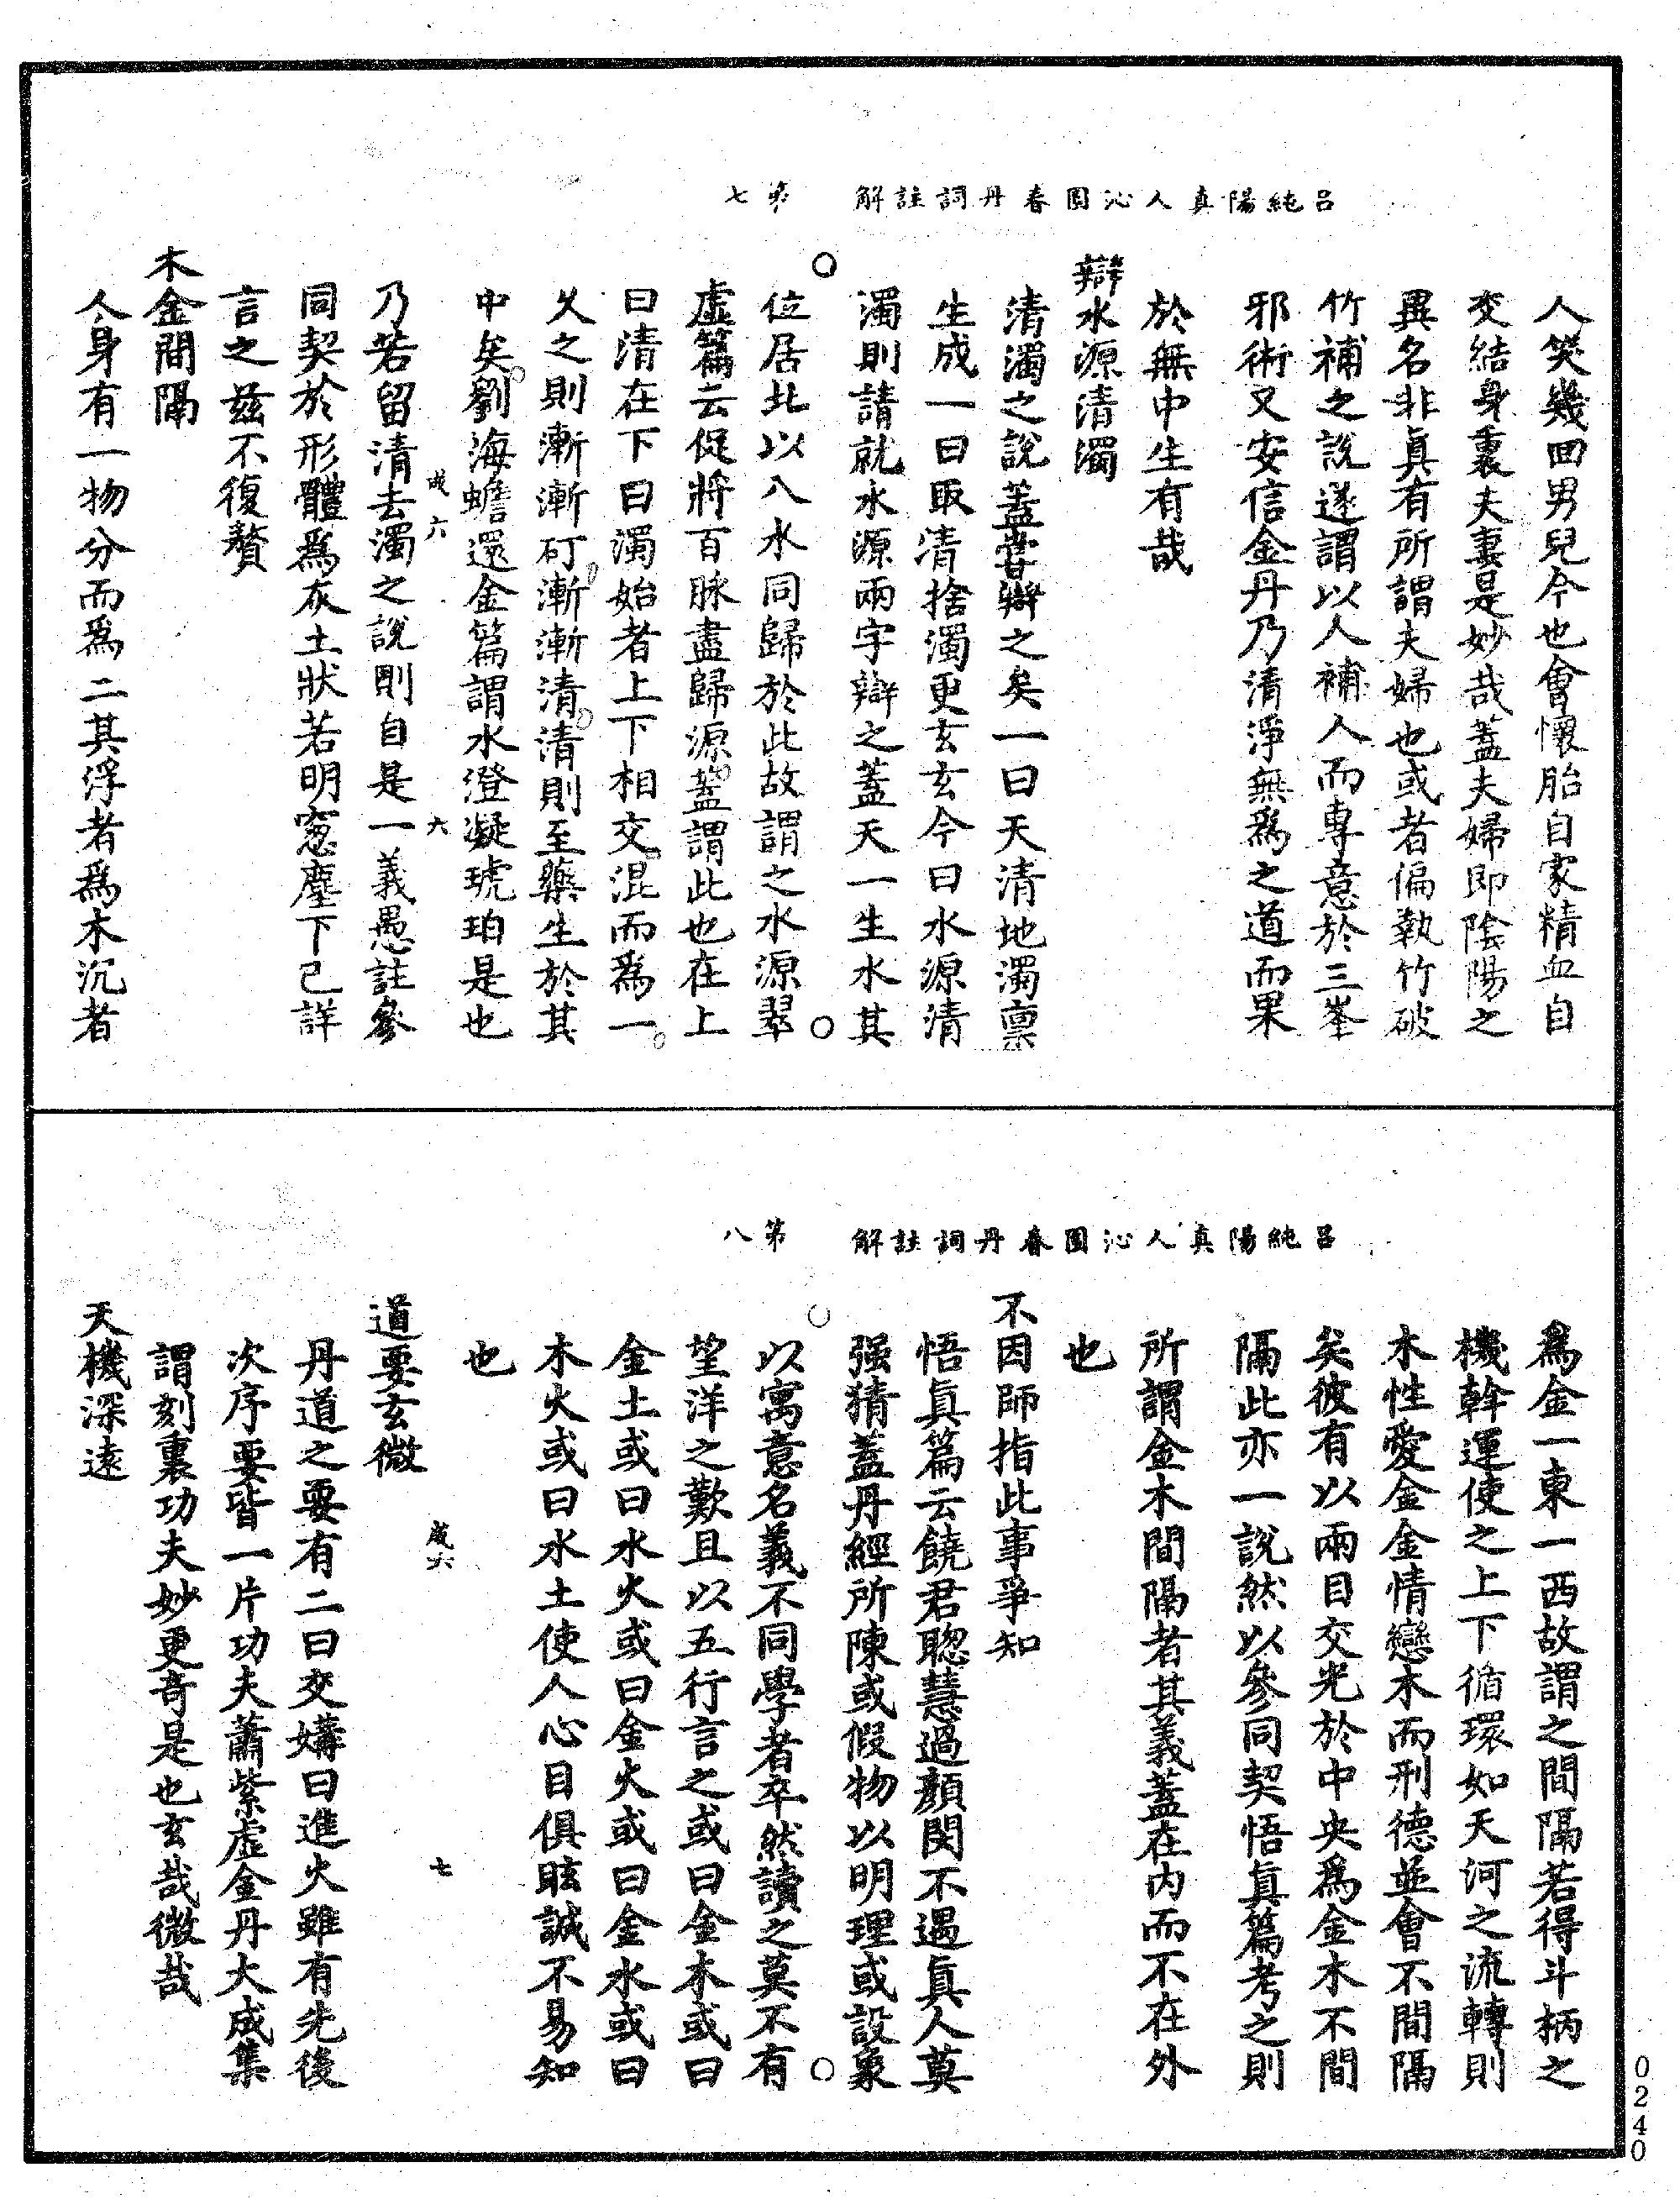 呂純陽真人沁園春丹詞註解　第七
人笑幾回男兒今也會懷胎自家精血自
交結身裏夫妻是妙哉蓋夫婦即陰陽之
異名非真有所謂夫婦也或者偏執竹破
竹補之說遂謂以人補人而專意於三峯
邪術又安信金丹乃清淨無爲之道而果
於無中生有哉
辯水源清濁
清濁之說蓋嘗辯之矣一曰天清地濁稟
生成一曰取清捨濁更玄玄今曰水源清
濁則請就水源兩字辯之蓋天一生水其
位居北以八水同歸於此故謂之水源翠
虛篇云促將百脉盡歸源蓋謂此也在上
曰清在下曰濁始者上下相交混而爲一
久之則漸漸矴漸漸清清則至藥生於其
中矣劉海蟾還金篇謂水澄凝琥珀是也
咸六　六
乃若留清去濁之說則自是一義愚註參
同契於形體爲灰土狀若明窓塵下已詳
言之茲不復贅
木金間隔
人身有一物分而爲二其浮者爲木沉者
呂純陽真人沁園春丹詞註解　第八
爲金一東一西故謂之間隔若得斗柄之
機斡運使之上下循環如天河之流轉則
木性愛金金情戀木而刑德並會不間隔
矣彼有以兩目交光於中央爲金木不間
隔此亦一說然以參同契悟真篇考之則
所謂金木間隔者其義蓋在內而不在外
也
不因師指此事爭知
悟真篇云饒君聰慧過顏閔不遇真人莫
强猜蓋丹經所陳或假物以明理或設象
以寓意名義不同學者卒然讀之莫不有
望洋之歎且以五行言之或曰金木或曰
金土或曰水火或曰金火或曰金水或曰
木火或曰水土使人心目俱眩誠不易知
也
咸六　七
道要玄微
丹道之要有二曰交媾曰進火雖有先後
次序要皆一片功夫蕭紫虛金丹大成集
謂刻裏功夫妙更奇是也玄哉微哉
天機深遠
0240